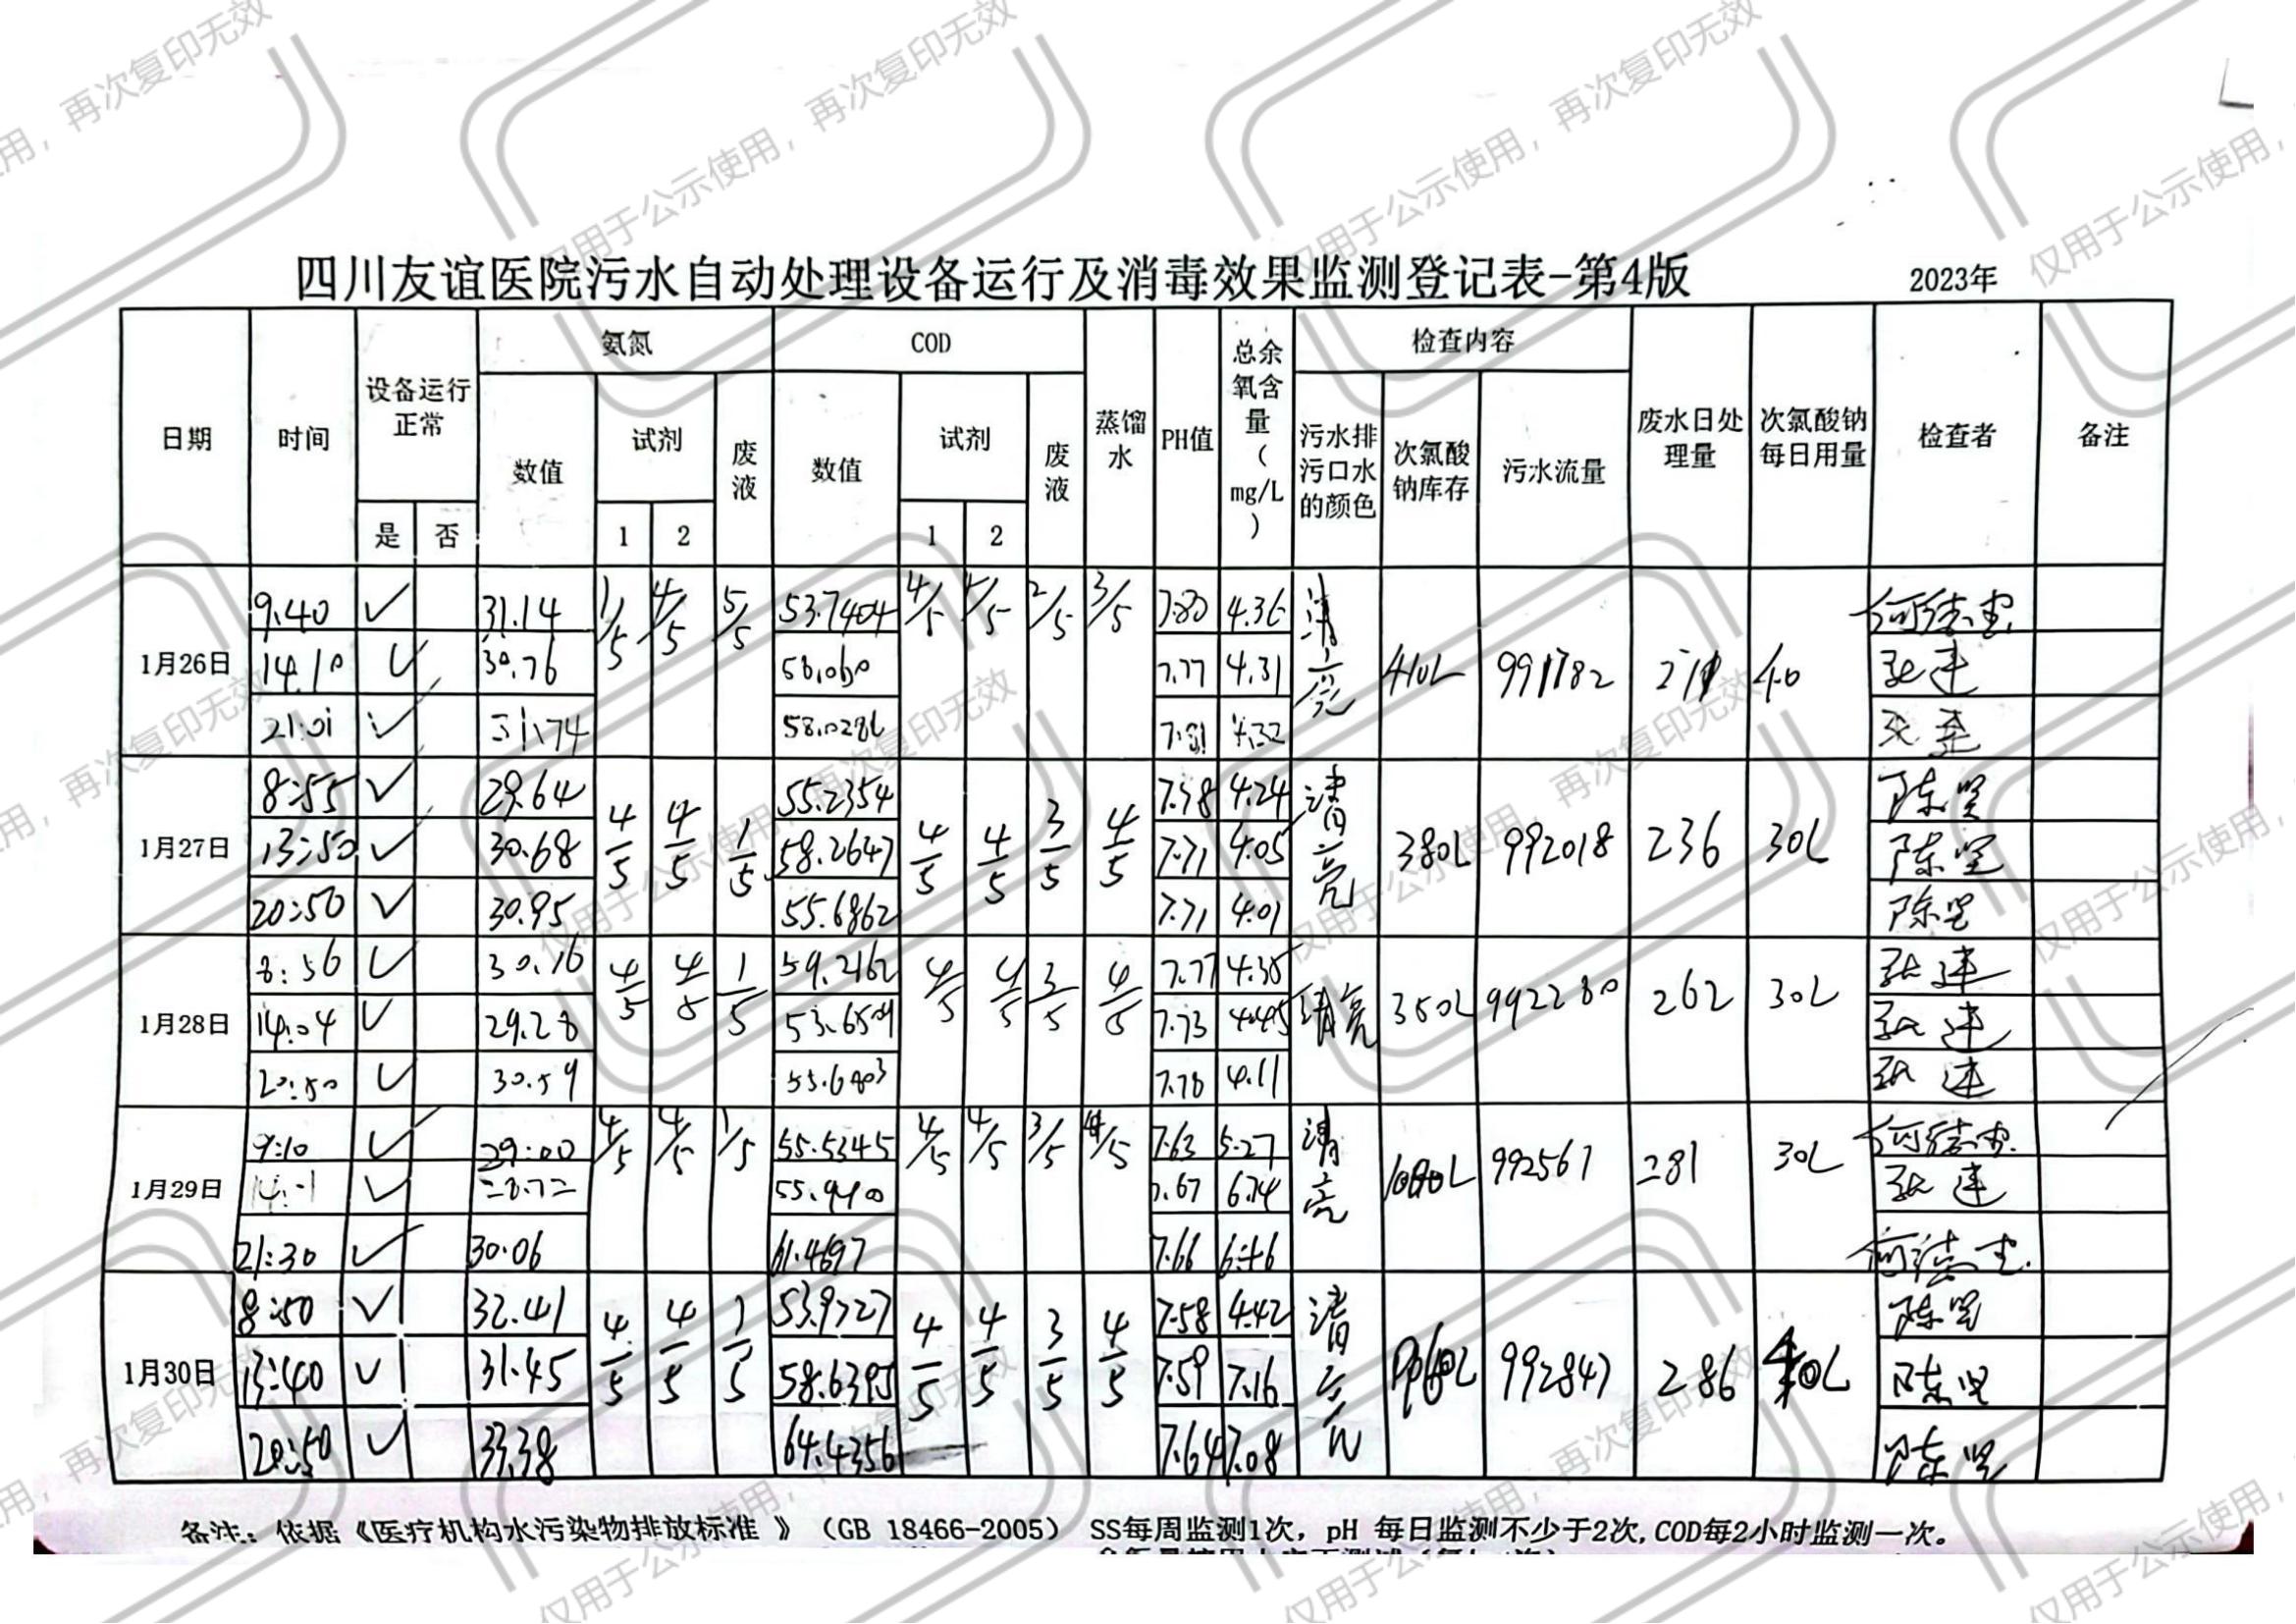 四川友谊医院污水自动处理设备运行及消毒效果监测登记表-第4版 2023年
日期 时间 设备运行正常 氨氮 COD 蒸馏水 PH值 总余氧含量(mg/L) 检查内容 废水日处理量 次氯酸钠每日用量 检查者 备注
是 否 数值 试剂 废液 数值 试剂 废液 污水排污口水的颜色 次氯酸钠库存 污水流量
1 2 1 2
1月26日 9:40 ✓ 31.14 1/5 4/5 5/5 53.7404 4/5 4/5 2/5 3/5 7.80 4.36 清亮 410L 991782
14:10 ✓ 30.76 7.77 4.31
21:01 ✓ 31.74 7.81 4.32
1月27日 8:55 ✓ 29.64 4/5 4/5 1/5 55.2354 4/5 4/5 3/5 4/5 4.24 清亮 380L 992018 236 30L 陈坚
13:50 ✓ 30.68 58.2647 7.71 4.05 陈坚
20:50 ✓ 30.95 55.6862 7.71 4.01 陈坚
1月28日 8:56 ✓ 30.16 4/5 4/5 1/5 59.2162 4/5 4/5 3/5 4/5 7.77 清亮 350L 992280 262 30L
14:04 ✓ 29.28 7.73
20:50 ✓ 30.59 7.78 4.11
1月29日 9:10 ✓ 29.00 4/5 4/5 1/5 55.5345 4/5 4/5 3/5 4/5 7.63 5.27 清亮 992561 281 30L
✓ 28.72 7.67
21:30 ✓ 30.06 61.4697 7.66 6.46
1月30日 8:50 ✓ 32.41 4/5 4/5 1/5 53.9727 4/5 4/5 3/5 4/5 7.58 4.42 清亮 992847 286 40L 陈坚
13:40 ✓ 31.45 58.6395 7.59 7.16 陈坚
20:50 ✓ 33.38 64.4356 7.64 7.08 陈坚
备注：依据《医疗机构水污染物排放标准 》（GB 18466-2005） SS每周监测1次，pH 每日监测不少于2次,COD每2小时监测一次。
仅用于公示使用，再次复印无效